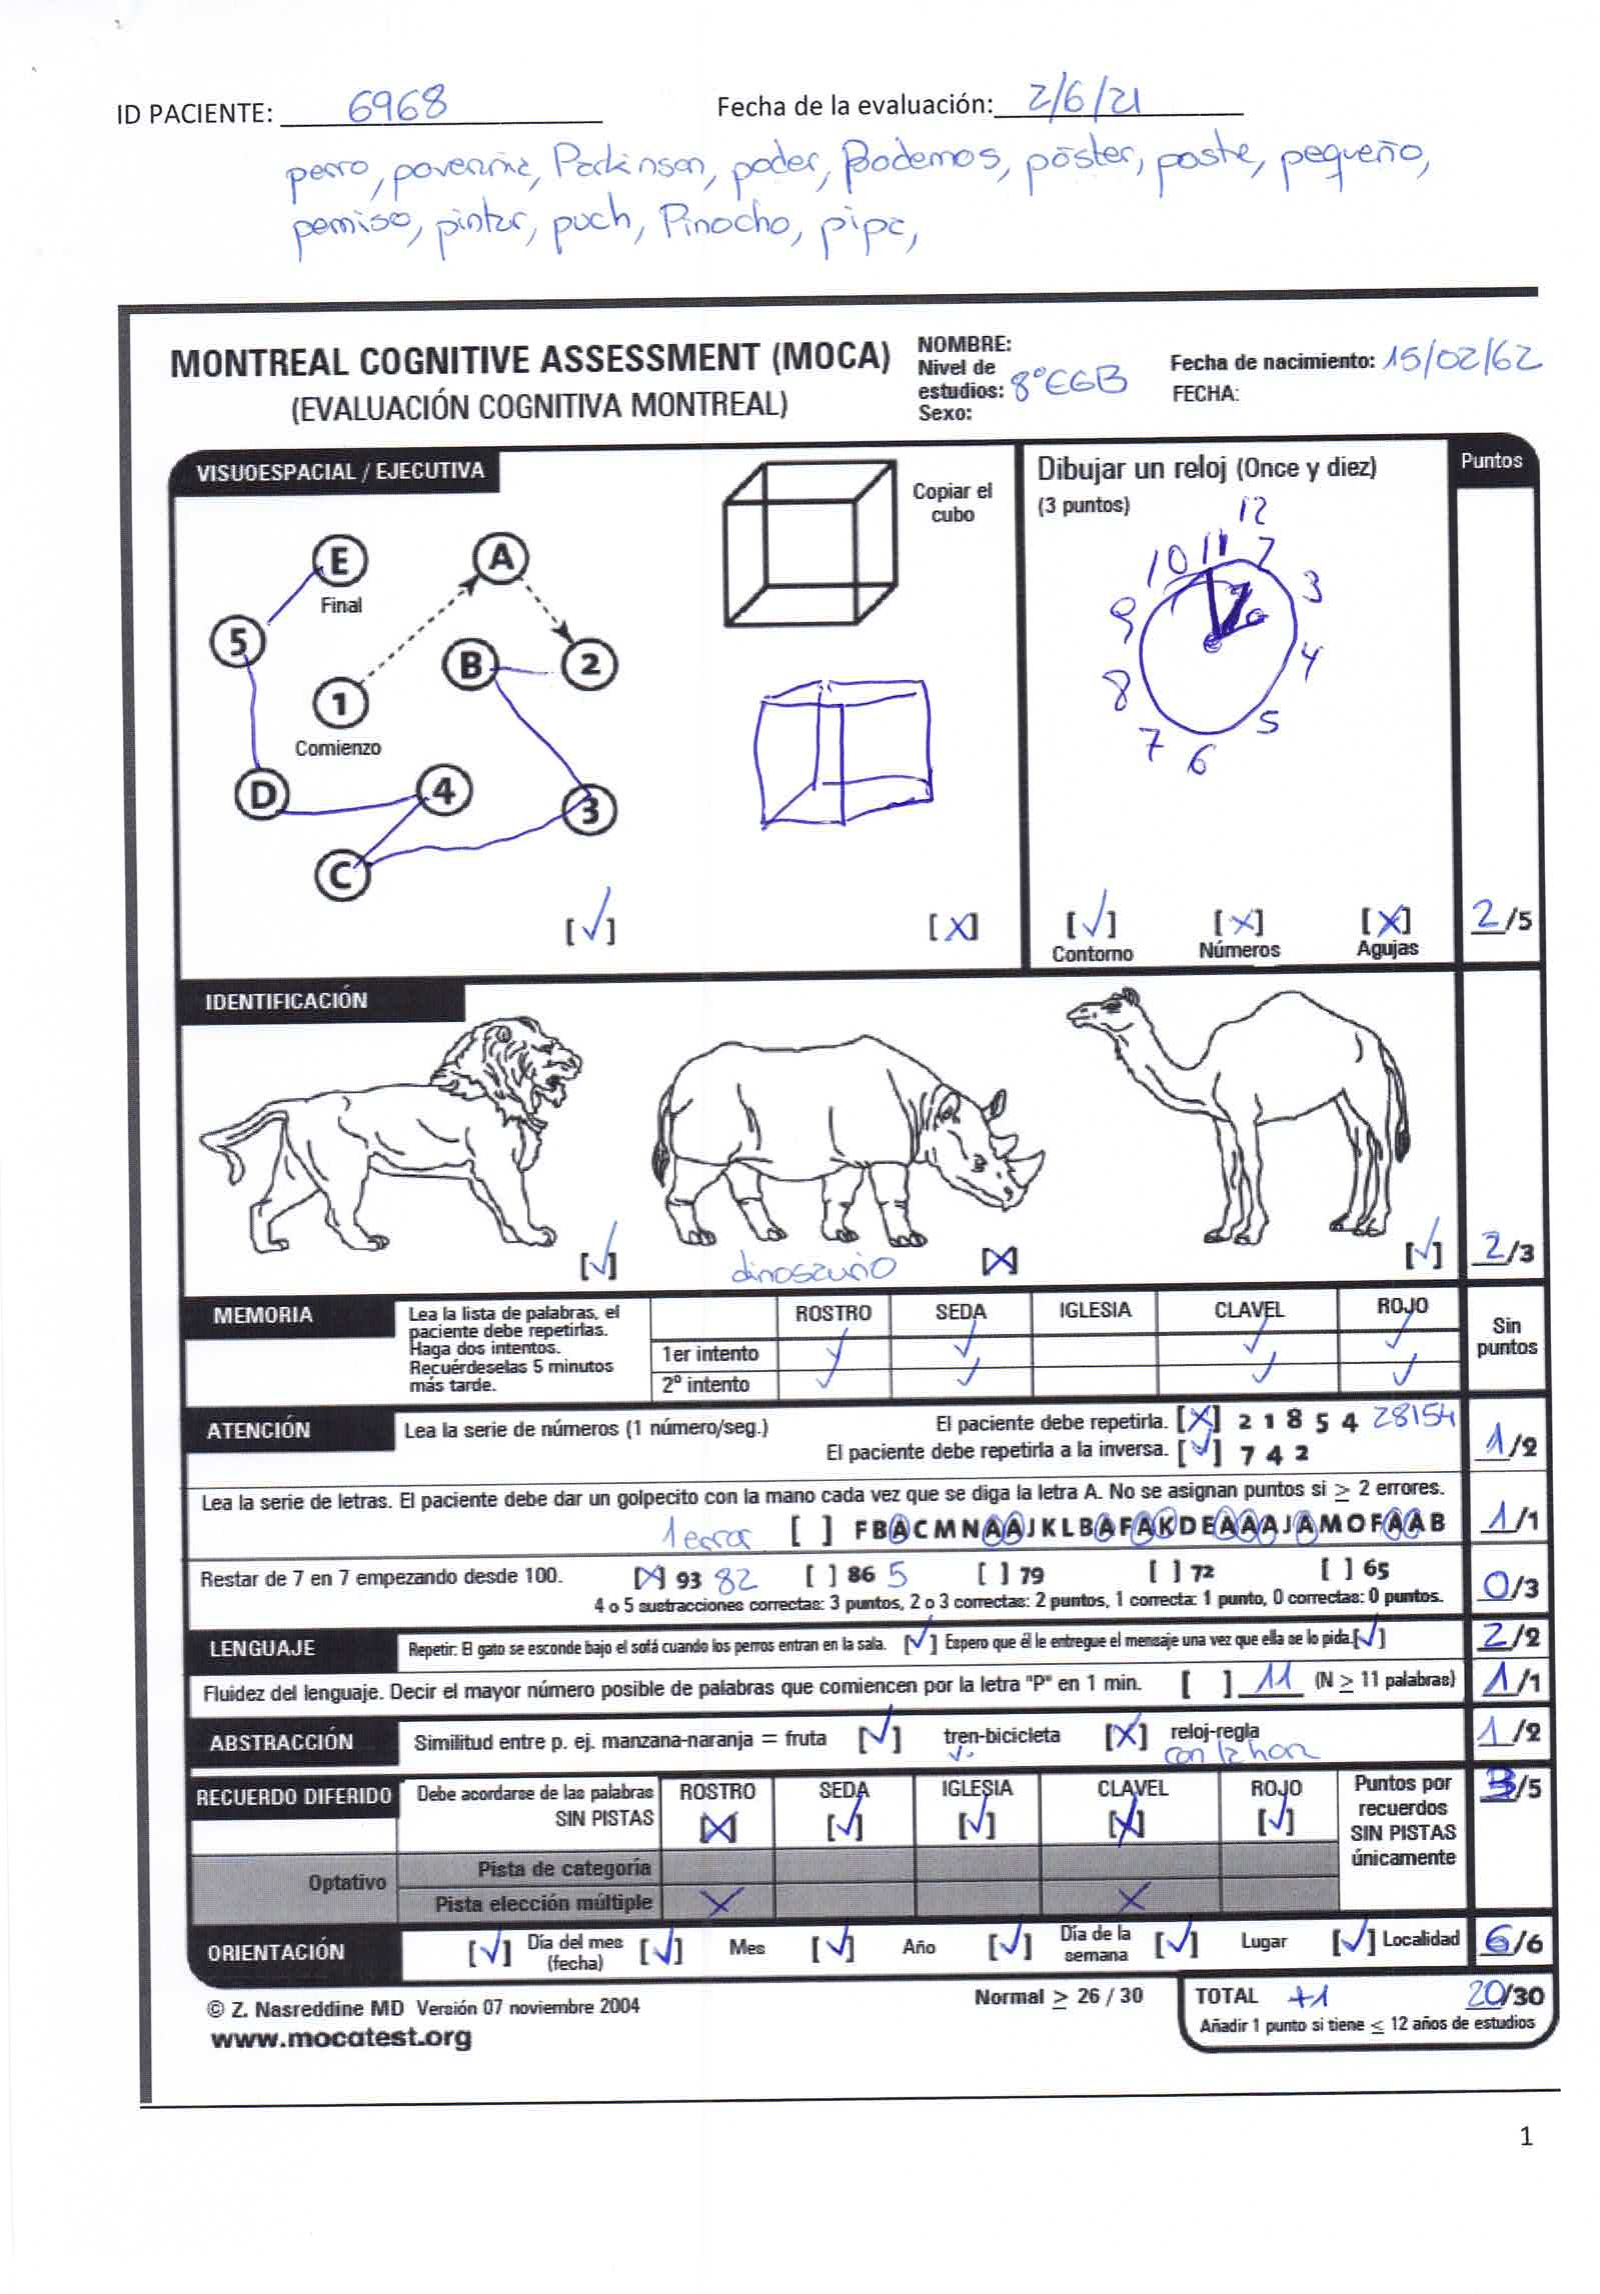 ID PACIENTE: 6968 Fecha de la evaluación: 2/6/21
perro, Parkinson, poder, Podemos, póster, poste, pequeño,
pemiso, pintar, puch, Pinocho, pipa,
MONTREAL COGNITIVE ASSESSMENT (MOCA)
(EVALUACIÓN COGNITIVA MONTREAL)
NOMBRE:
Nivel de
estudios: 8º EGB
Sexo:
Fecha de nacimiento: 15/02/62
FECHA:
VISUOESPACIAL / EJECUTIVA
E
Final
A
5
B
2
1
Comienzo
D
4
3
C
[✓]
Copiar el
cubo
[X]
Dibujar un reloj (Once y diez)
(3 puntos)
12
10 11 2
9 3
8 4
7 6 5
[✓] [X] [X]
Contorno Números Agujas
Puntos
2/5
IDENTIFICACIÓN
[✓] dinosaurio [X] [✓] 2/3
MEMORIA
Lea la lista de palabras, el
paciente debe repetirlas.
Haga dos intentos.
Recuérdeselas 5 minutos
más tarde.
ROSTRO SEDA IGLESIA CLAVEL ROJO
1er intento ✓ ✓ ✓ ✓
2º intento ✓ ✓ ✓ ✓
Sin
puntos
ATENCIÓN
Lea la serie de números (1 número/seg.) El paciente debe repetirla. [X] 2 1 8 5 4 28154
El paciente debe repetirla a la inversa. [✓] 7 4 2 1/2
Lea la serie de letras. El paciente debe dar un golpecito con la mano cada vez que se diga la letra A. No se asignan puntos si ≥ 2 errores.
1 error [ ] F B A C M N A A J K L B A F A K D E A A A J A M O F A A B 1/1
Restar de 7 en 7 empezando desde 100. [X] 93 82 [ ] 86 5 [ ] 79 [ ] 72 [ ] 65
4 o 5 sustracciones correctas: 3 puntos, 2 o 3 correctas: 2 puntos, 1 correcta: 1 punto, 0 correctas: 0 puntos. 0/3
LENGUAJE Repetir: El gato se esconde bajo el sofá cuando los perros entran en la sala. [✓] Espero que él le entregue el mensaje una vez que ella se lo pida. [✓] 2/2
Fluidez del lenguaje. Decir el mayor número posible de palabras que comiencen por la letra "P" en 1 min. [ ] 11 (N ≥ 11 palabras) 1/1
ABSTRACCIÓN Similitud entre p. ej. manzana-naranja = fruta [✓] tren-bicicleta [X] reloj-regla 1/2
v. con la hora
RECUERDO DIFERIDO
Debe acordarse de las palabras
SIN PISTAS
ROSTRO SEDA IGLESIA CLAVEL ROJO
[X] [✓] [✓] [X] [✓]
Puntos por
recuerdos
SIN PISTAS
únicamente
3/5
Optativo
Pista de categoría
Pista elección múltiple X X
ORIENTACIÓN [✓] Día del mes (fecha) [✓] Mes [✓] Año [✓] Día de la semana [✓] Lugar [✓] Localidad 6/6
© Z. Nasreddine MD Versión 07 noviembre 2004
www.mocatest.org
Normal ≥ 26 / 30
TOTAL +1 20/30
Añadir 1 punto si tiene ≤ 12 años de estudios
1